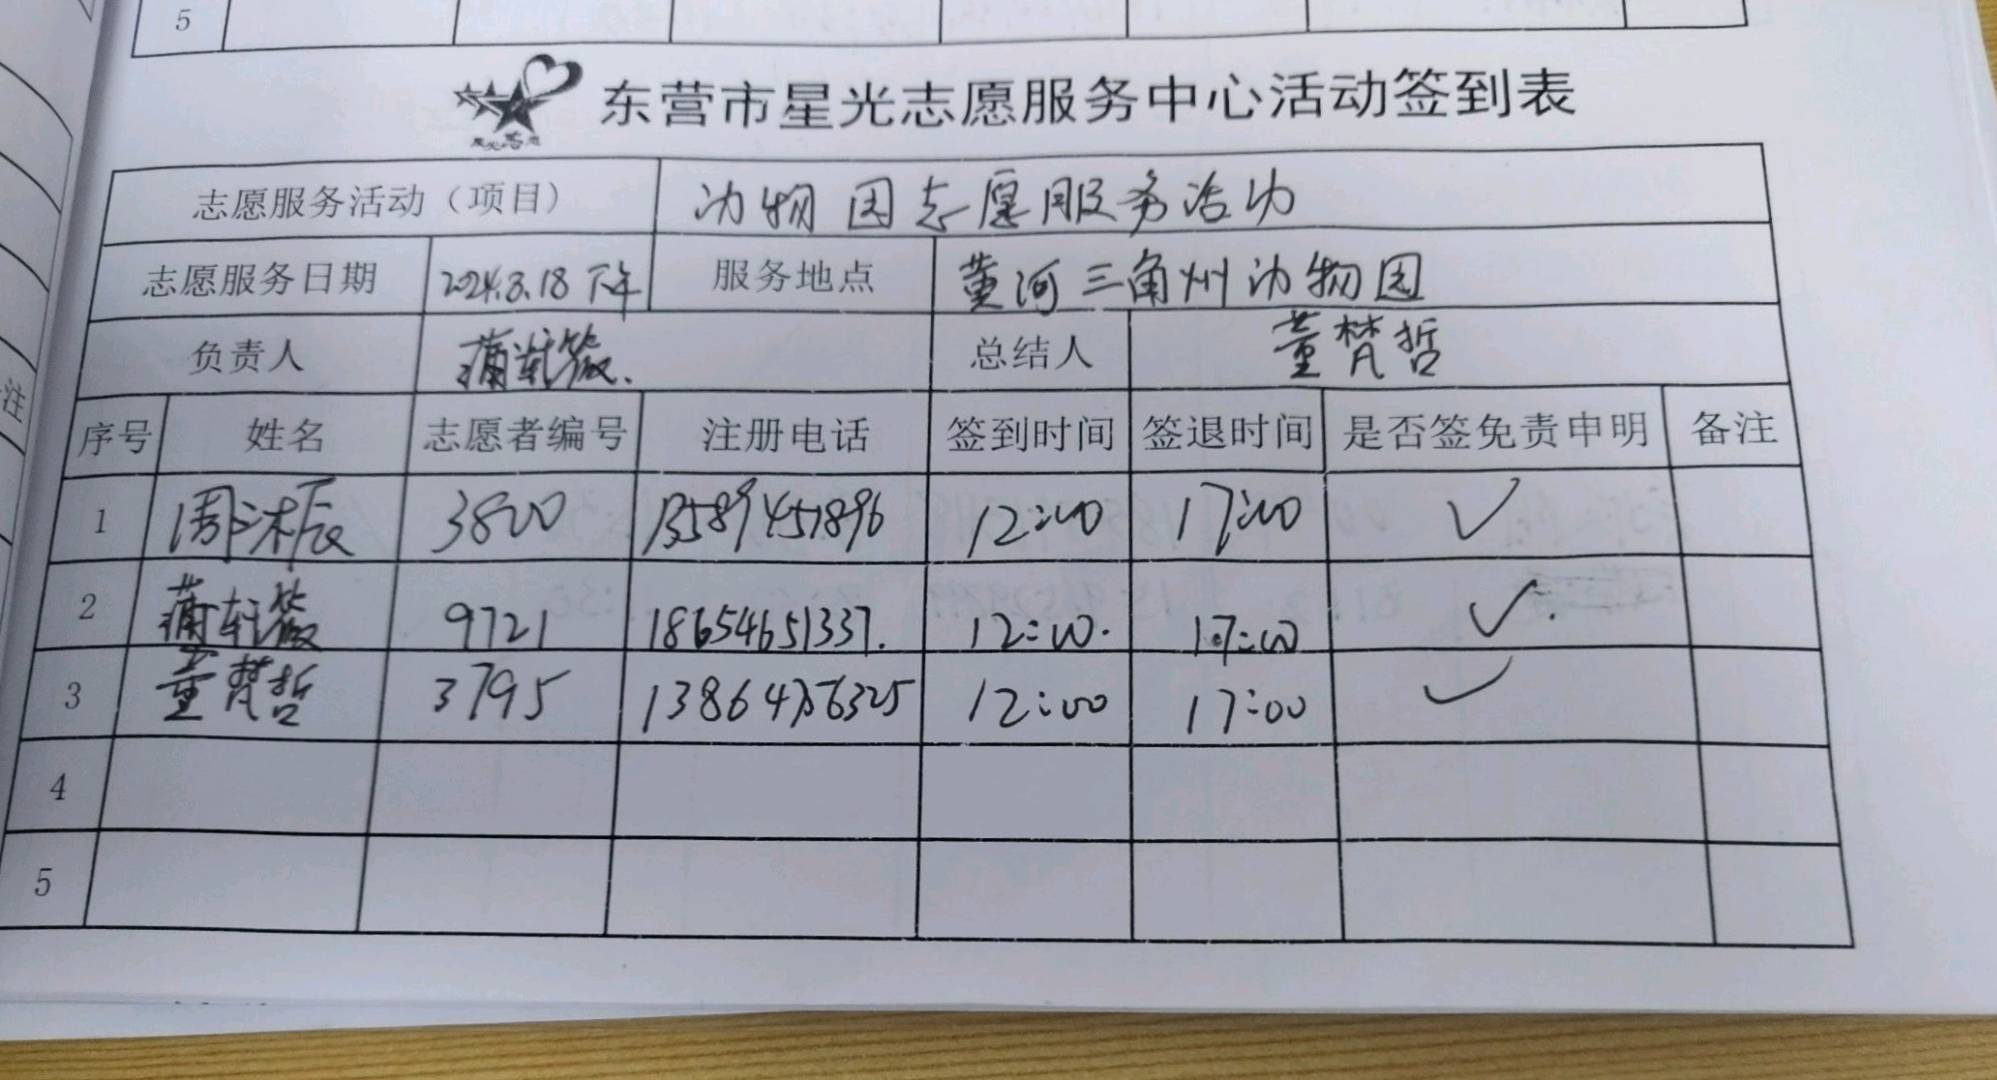 5
东营市星光志愿服务中心活动签到表
志愿服务活动（项目） 动物园志愿服务活动
志愿服务日期 2024.3.18 下午 服务地点 黄河三角州动物园
负责人 总结人 董梵哲
注
序号 姓名 志愿者编号 注册电话 签到时间 签退时间 是否签免责申明 备注
1 周沐辰 3800 13589451896 12:00 17:00 ✓
2 9721 18654651337. 12:00. 17:00 ✓.
3 董梵哲 3795 12:00 17:00 ✓
4
5